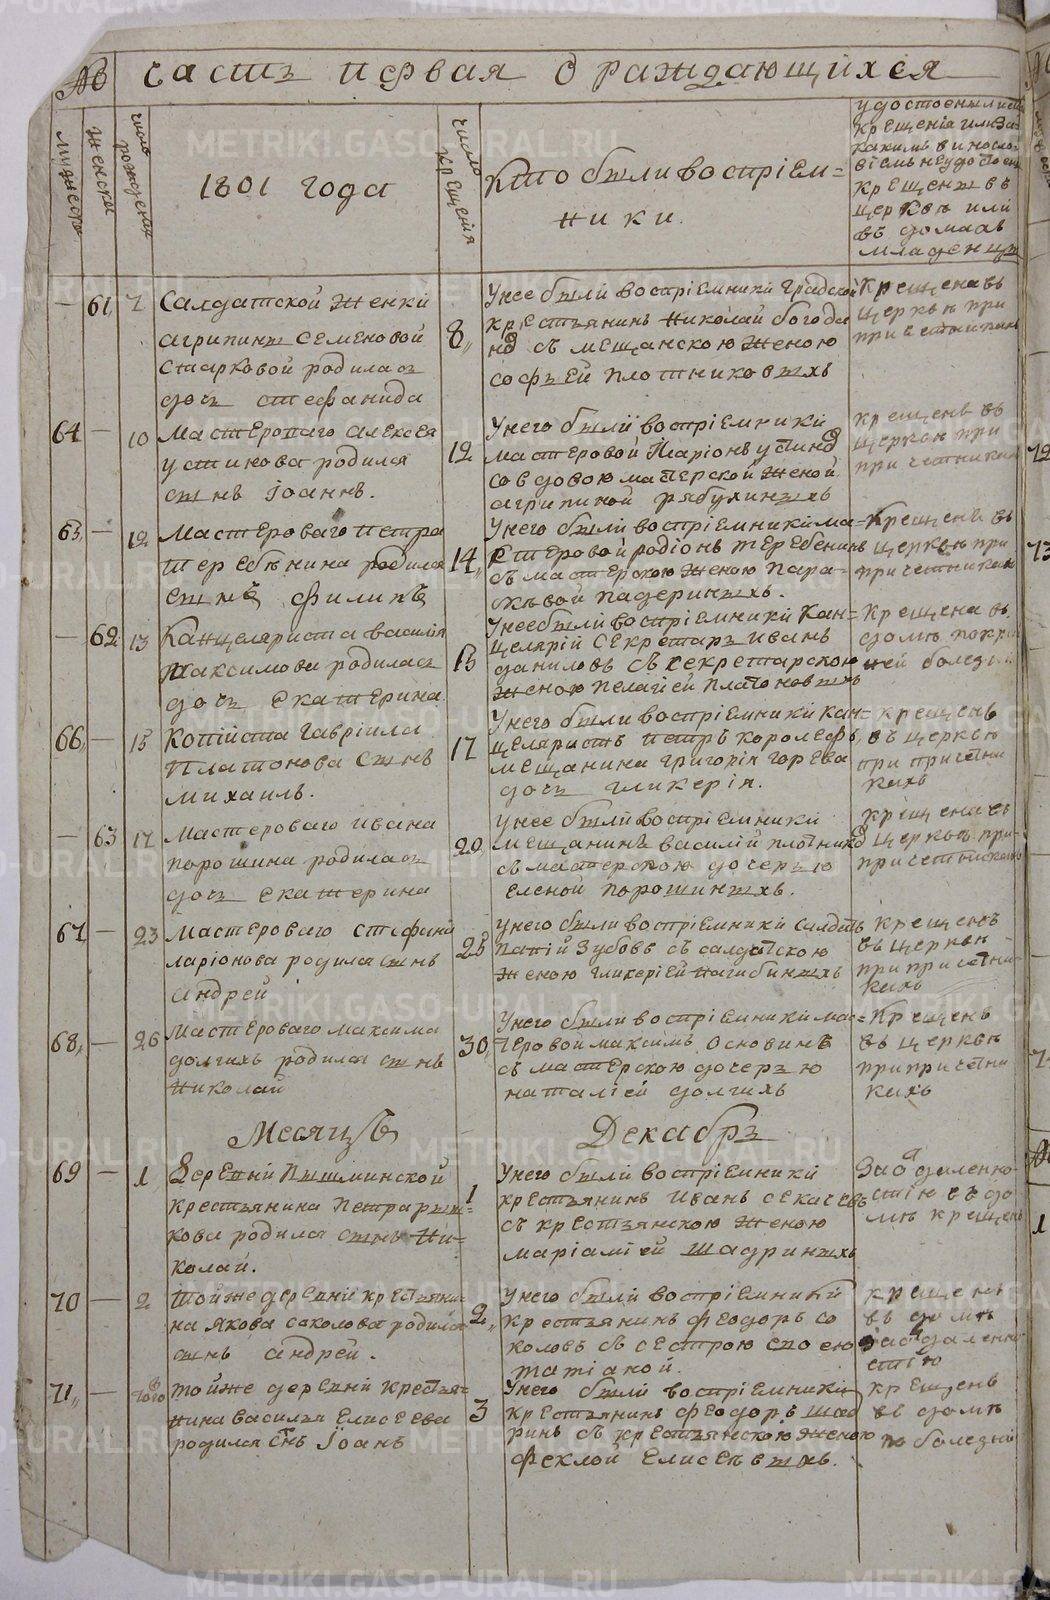 № часть первая о раждающихся
мужеска
женска
число рождения
1801 года
число крещения
Кто были воспріем=
ники.
удостоены ли св.
крещенія или за
какимъ винослов
крещены въ
церквѣ или
въ домахъ
младенцы
— 61, 7 Салдатской женки
агрипины Семеновой
Старковой родилась
дочь стефанида
8,
Унее были воспріемники градской
крестьянинъ николай богода
новъ съ мещанскою женою
софьей плотниковыхъ
Крещена въ
церкви при
причетникахъ
64 — 10 Мастероваго алексея
устинова родился
сынъ Іоаннъ.
12
Унего были воспріемники
мастеровой Ларіонъ устиновъ
совдовою мастерской женой
агрипиной рябухиныхъ
крещенъ въ
церкви при
причетникахъ
65, — 12 Мастероваго петра
теребѣнина родился
сынъ филипъ
14,
Унего были воспріемники ма=
стеровой родіонъ теребенинъ
съ мастерскою женою пара=
скѣвой падериныхъ.
Крещенъ въ
церквѣ при
причетникахъ
— 62 13 Канцеляриста василія
максимова родилась
дочь екатерина
15
Унее были воспріемники Кан=
целяріи Секретарь иванъ
даниловъ съ секретарскою
женою пелагіей платоновыхъ
Крещена въ
домѣ по край
ней болезни
66, — 15 Копіиста гавріила
платонова сынъ
михаилъ.
17
Унего были воспріемники кан=
целяристъ петръ королефъ,
мещанина григорія горева
дочь гликерія.
крещенъ
въ церквѣ
при причетни
кахъ
— 63 17 Мастероваго ивана
порошина родилась
дочь екатерина
20,
Унее были воспріемники
мещанинъ василій плотниковъ
съ мастерскою дочерью
еленой порошиныхъ.
крещена въ
церквѣ при=
причетникахъ
67 — 23 Мастероваго стефана
ларіонова родился сынъ
андрей
25
Унего были воспріемники салдатъ
папій Зубовъ съ салдатскою
женою гликеріей нагибиныхъ
крещенъ
въ церквѣ
при причетни-
кахъ
68, — 26 Мастероваго максима
долгихъ родился сынъ
николай
30,
Унего были воспріемники мас=
теровой максимъ Основинъ
съ мастерскою дочерью
наталіей долгихъ
Крещенъ
въ церквѣ
при причетни
кахъ
Месяцъ Декабрь
69 — 1 Деревни Пышминской
крестьянина Петра рыж=
кова родился сынъ ни=
колай.
1
Унего были воспріемники
крестьянинъ иванъ секачевъ
съ крестьянскою женою
маріаміей шадриныхъ
За отдаленно-
стію въ до
мѣ крещенъ
70 — 2 тойже деревни крестьяни=
на якова саколова родился
сынъ андрей.
2,
Унего были воспріемники
крестьянинъ феодоръ со
коловъ съ сестрою своею
татіаной.
крещенъ
въ домѣ
за отдаленно
стію
71, — того тойже деревни крестья=
нина василья елисеева
родился сынъ Іоанъ
3
Унего были воспріемники
крестьянинъ феодоръ шад
ринъ съ крестьянскою женою
феклой елисѣевыхъ.
крещенъ
въ домѣ
по болезни